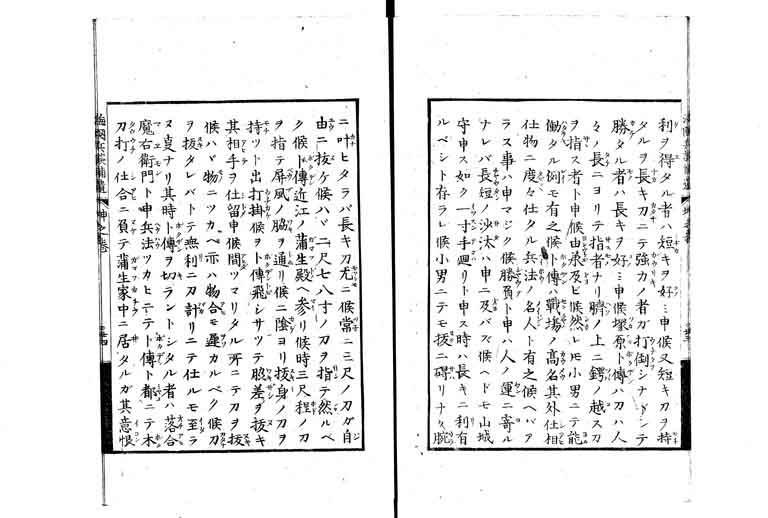 利ヲ得タル者ハ短キヲ好ミ申候又短キ刀ヲ持
タルヲ長キ刀ニテ強カノ者ガ打倒シナドシテ
勝タル者ハ長キヲ好ミ申候塚原卜傳ハ刀ハ人
々ノ長ニヨリテ指者ナリ臍ノ上ニ鍔ノ越ス刀
ヲ指ス者ト申候由承及ビ候然レドモ小男ニテ能
働タル例モ有之候卜傳ハ戰場ノ高名其外仕相
仕物ニ度々仕タル兵法ノ名人ト有之候ヘバア
ラス事ハ申マジク候勝負ト申ハ人ノ運ニ寄ル
ナレバ長短ノ沙汰ハ申ニ及バズ候ヘドモ山城
守申スハ如ク一寸手廻リト申ス時ハ長キニ利有
ルベシト存ラレ候小男ニテモ拔ニ碍リナク腕
ニ叶ヒタラバ長キ刀尤ニ候當ニ三尺ノ刀ガ自
由ニ拔ケ候ハヾ二尺七八寸ノ刀ヲ指テ然ルベ
ク候卜傳近江ノ蒲生殿ヘ參リ候時三尺程ノ刀
ヲ指テ屏風ノ脇ヲ通リ候ニ陰ヨリ拔身ノ刀ヲ
持ツト出打掛候ヲ卜傳飛シサツテ脇差ヲ拔キ
其相手ヲ仕留申候間ツマリタル所ニテ刀ヲ拔
候ハヾ物ニツカヘ亦ハ物合モ遲カルベク候刀
ヲ拔タレバトテ無利ニ刀計リニテ仕ルモ至ラ
ヌ眞ナリ其時卜傳ヲ切ラントシタル者ハ落合
魔右衛門ト申兵法ツカヒニテ卜傳ト都ニテ木
刀打ノ仕合ニ負テ蒲生家中ニ居タルガ其意恨
坤之卷